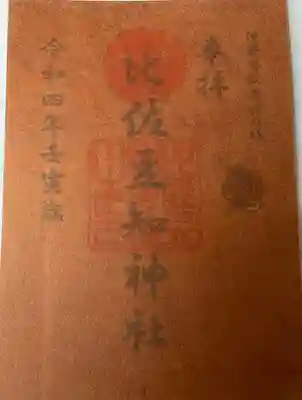 奉拝
比佐豆知神社
令和四年壬寅歳